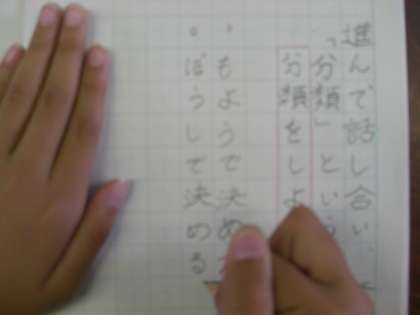 進んで話し合い、
「分類」という
分類をしよ
・もようで決め
・ぼうしで決める